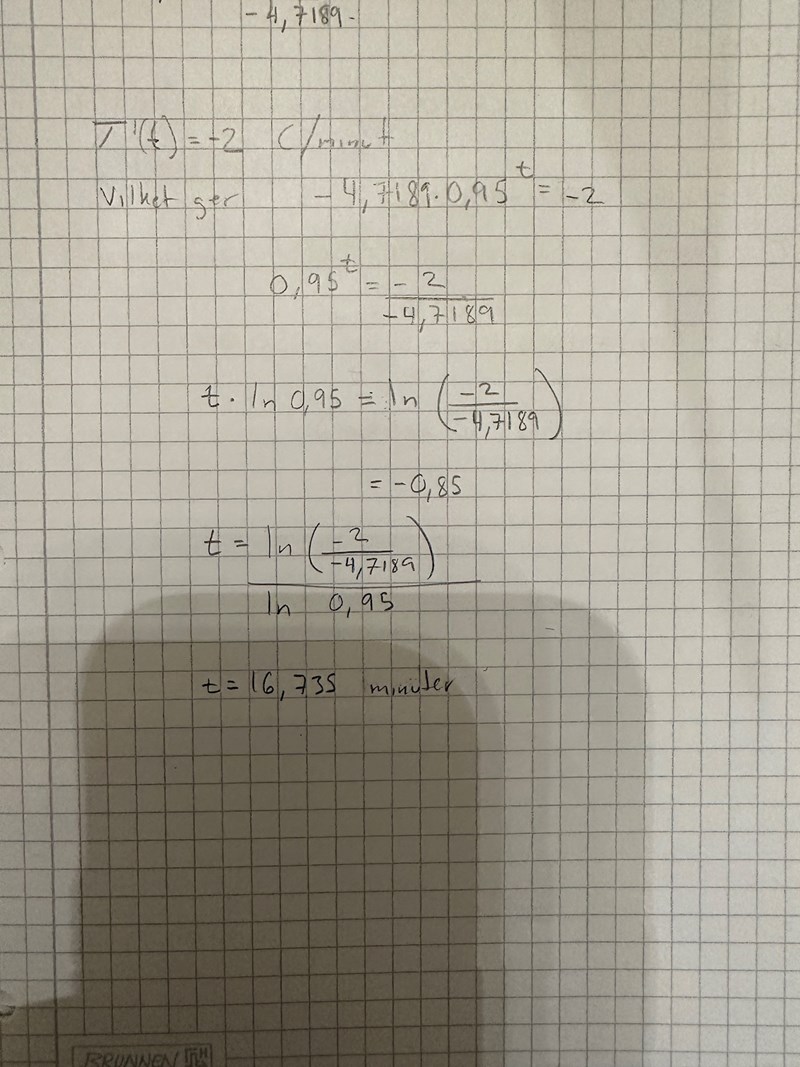 -4,7189·
T'(t) = -2 C/minut
Vilket ger -4,7189·0,95^t = -2
0,95^t = -2/-4,7189
t · ln 0,95 = ln (-2/-4,7189)
= -0,85
t = ln (-2/-4,7189) / ln 0,95
t = 16,735 minuter
BRUNNEN